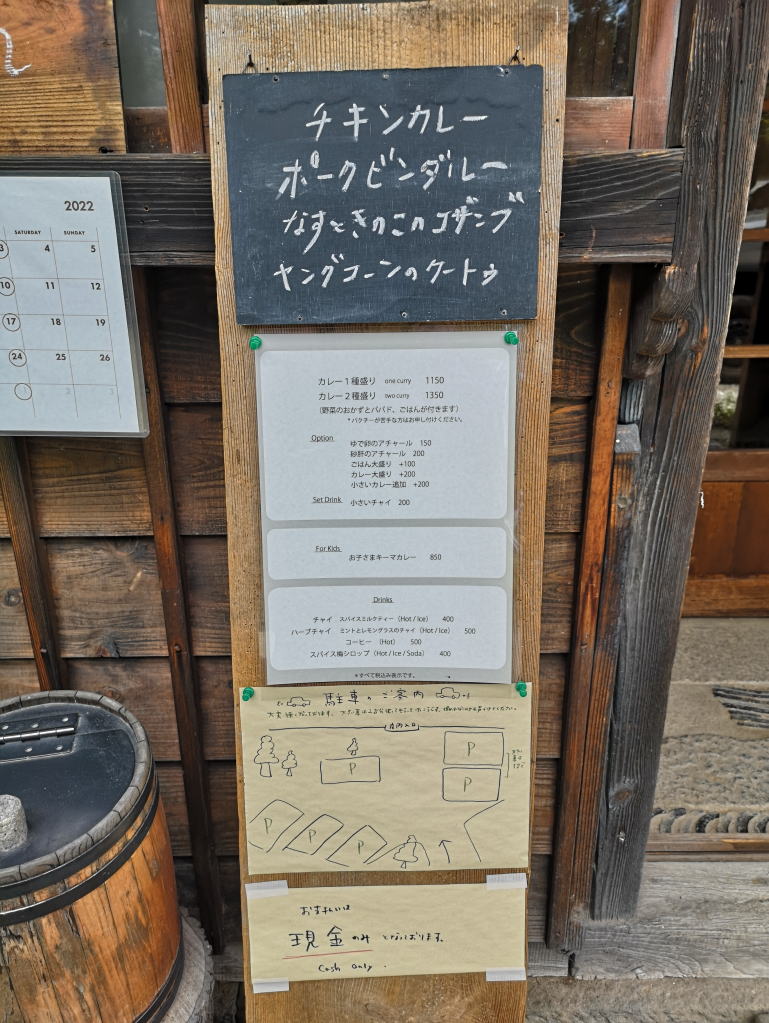 チキンカレー
ポークビンダルー
なすときのこのコザンブ
ヤングコーンのクートゥ
2022
SATURDAY SUNDAY
3 4 5
10 11 12
17 18 19
24 25 26
1 2 3
カレー1種盛り one curry 1150
カレー2種盛り two curry 1350
(野菜のおかずとパパド、ごはんが付きます)
*パクチーが苦手な方はお申し付けください。
Option
ゆで卵のアチャール 150
砂肝のアチャール 200
ごはん大盛り +100
カレー大盛り +200
小さいカレー追加 +200
Set Drink 小さいチャイ 200
For Kids
お子さまキーマカレー 850
Drinks
チャイ スパイスミルクティー (Hot / Ice) 400
ハーブチャイ ミントとレモングラスのチャイ (Hot / Ice) 500
コーヒー (Hot) 500
スパイス梅シロップ (Hot / Ice / Soda) 400
*すべて税込み表示です。
駐車のご案内
店内入口
P
P
P
P
P
P
お支払いは
現金のみ となっております。
Cash Only.